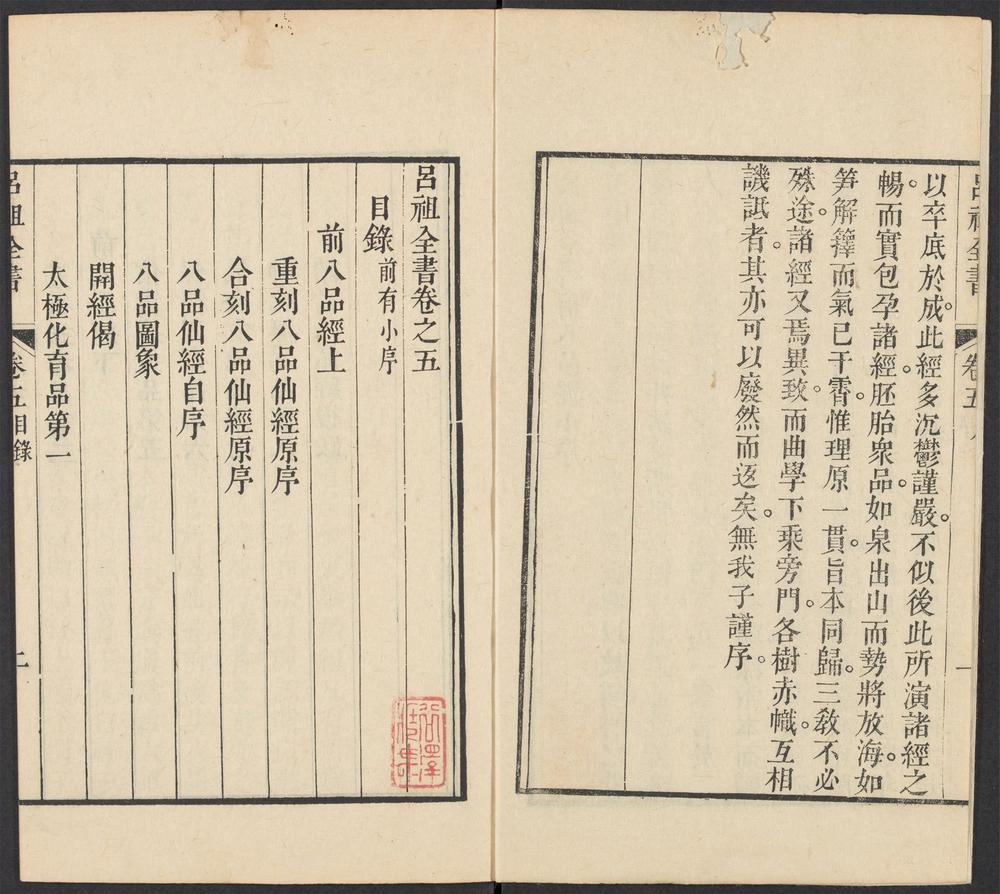 呂祖全書 卷五
以卒底於成。此經多沉鬱謹嚴。不似後此所演諸經之
暢。而實包孕諸經。胚胎衆品。如泉出山而勢將放海。如
笋解籜而氣已干霄。惟理原一貫。旨本同歸。三教不必
殊途。諸經又焉異致。而曲學下乘旁門。各樹赤幟。互相
譏詆者。其亦可以廢然而返矣。無我子謹序。
一
呂祖全書卷之五
目錄前有小序
前八品經上
重刻八品仙經原序
合刻八品仙經原序
八品仙經自序
八品圖象
開經偈
太極化育品第一
呂祖全書 卷五目錄 二